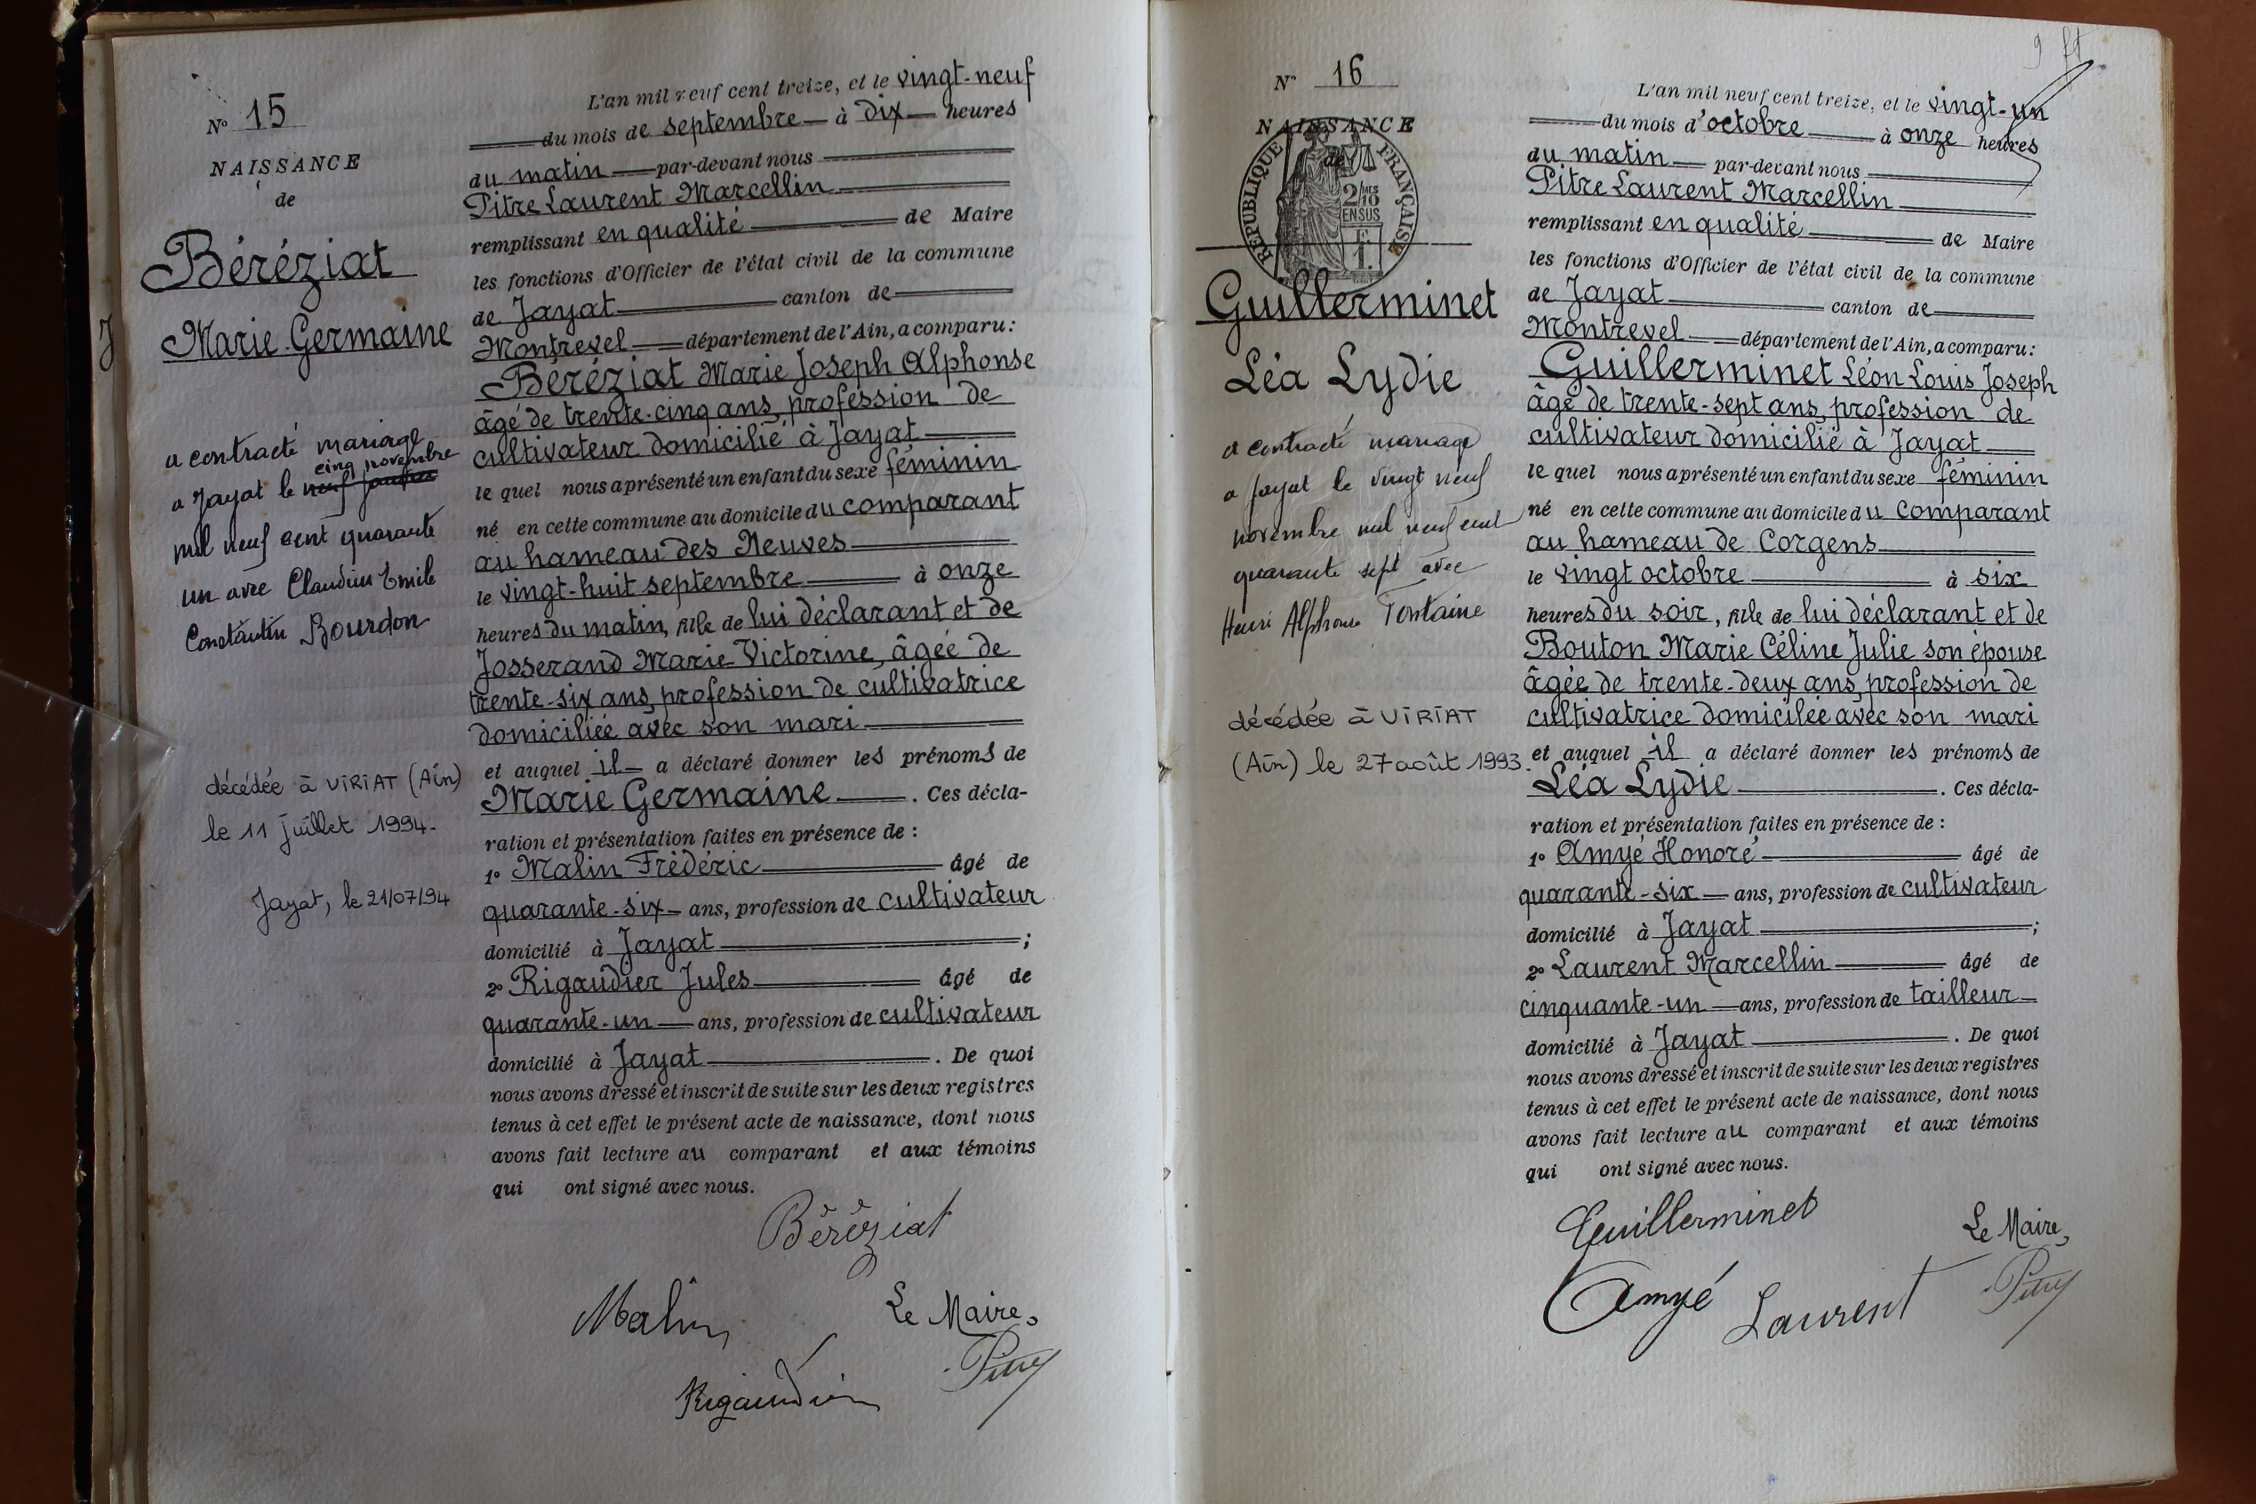 N° 15
NAISSANCE
de
Béréziat
Marie Germaine
a contracté mariage
cinq novembre
a Jayat le neuf
mil neuf cent quarante
un avec Claudius Emile
Constantin Bourdon
décédée à VIRIAT (Ain)
le 11 juillet 1994.
Jayat, le 21/07/94
J
L'an mil neuf cent treize, et le vingt-neuf
du mois de septembre à dix heures
du matin par-devant nous
Pitre Laurent Marcellin
remplissant en qualité de Maire
les fonctions d'Officier de l'état civil de la commune
de Jayat canton de
Montrevel département de l'Ain, a comparu:
Béréziat Marie Joseph Alphonse
âgé de trente-cinq ans, profession de
cultivateur domicilié à Jayat
le quel nous a présenté un enfant du sexe féminin
né en cette commune au domicile du comparant
au hameau des Neuves
le vingt-huit septembre à onze
heures du matin, fille de lui déclarant et de
Josserand Marie Victorine, âgée de
trente-six ans, profession de cultivatrice
domiciliée avec son mari
et auquel il a déclaré donner les prénoms de
Marie Germaine. Ces décla-
ration et présentation faites en présence de :
1° Malin Frédéric âgé de
quarante-six ans, profession de cultivateur
domicilié à Jayat ;
2° Rigaudier Jules âgé de
quarante-un ans, profession de cultivateur
domicilié à Jayat. De quoi
nous avons dressé et inscrit de suite sur les deux registres
tenus à cet effet le présent acte de naissance, dont nous
avons fait lecture au comparant et aux témoins
qui ont signé avec nous.
Béréziat
Malin
Le Maire,
Pitre
Rigaudier
N° 16
NAISSANCE
de
RÉPUBLIQUE FRANÇAISE
2/10 MES
EN SUS
F.
1.
Guillerminet
Léa Lydie
a contracté mariage
a Jayat le vingt neuf
novembre mil neuf cent
quarante sept avec
Henri Alphonse Fontaine
décédée à VIRIAT
(Ain) le 27 août 1993.
L'an mil neuf cent treize, et le vingt-un
du mois d'octobre à onze heures
du matin par-devant nous
Pitre Laurent Marcellin
remplissant en qualité de Maire
les fonctions d'Officier de l'état civil de la commune
de Jayat canton de
Montrevel département de l'Ain, a comparu:
Guillerminet Léon Louis Joseph
âgé de trente-sept ans, profession de
cultivateur domicilié à Jayat
le quel nous a présenté un enfant du sexe féminin
né en cette commune au domicile du comparant
au hameau de Corgens
le vingt octobre à six
heures du soir, fille de lui déclarant et de
Bouton Marie Céline Julie son épouse
âgée de trente-deux ans, profession de
cultivatrice domicilée avec son mari
et auquel il a déclaré donner les prénoms de
Léa Lydie. Ces décla-
ration et présentation faites en présence de :
1° Amyé Honoré âgé de
quarante-six ans, profession de cultivateur
domicilié à Jayat ;
2° Laurent Marcellin âgé de
cinquante-un ans, profession de tailleur
domicilié à Jayat. De quoi
nous avons dressé et inscrit de suite sur les deux registres
tenus à cet effet le présent acte de naissance, dont nous
avons fait lecture au comparant et aux témoins
qui ont signé avec nous.
Guillerminet
Le Maire,
Amyé Laurent
Pitre